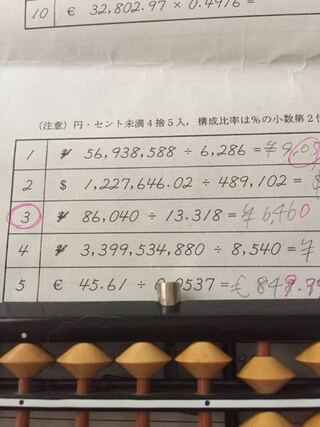 10 € 32,802.97 × 0.4976 =
(注意) 円・セント未満4捨5入, 構成比率は%の小数第2位
1 ¥ 56,938,588 ÷ 6,286 = ¥9,05
2 $ 1,227,646.02 ÷ 489,102 = $
3 ¥ 86,040 ÷ 13.318 = ¥6,460
4 ¥ 3,399,534,880 ÷ 8,540 = ¥
5 € 45.61 ÷ 0.0537 = € 849.